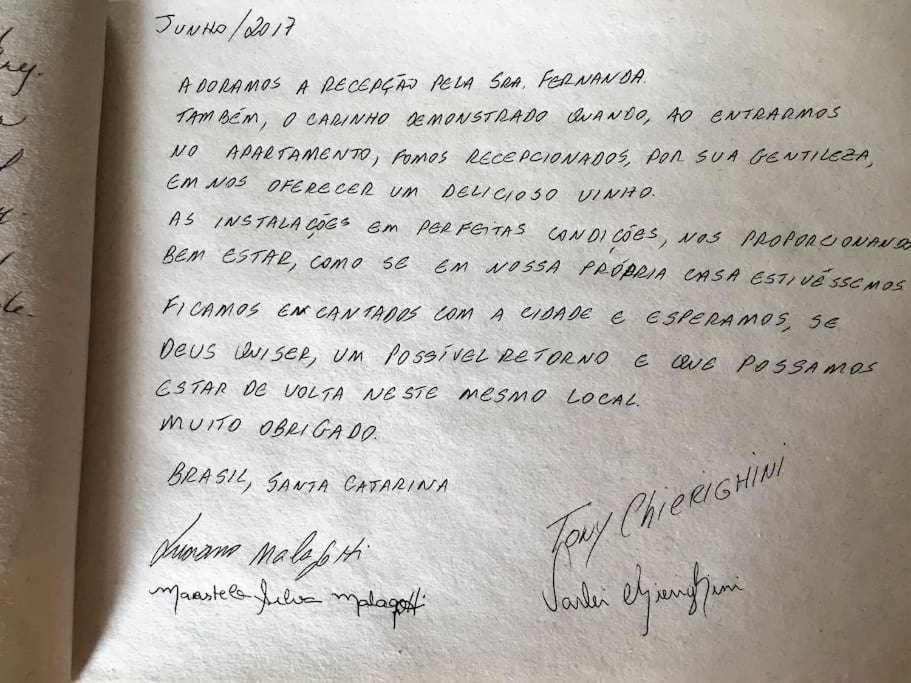 JUNHO/2017
ADORAMOS A RECEPÇÃO PELA SRA. FERNANDA.
TAMBÉM, O CARINHO DEMONSTRADO QUANDO, AO ENTRARMOS
NO APARTAMENTO, FOMOS RECEPCIONADOS, POR SUA GENTILEZA,
EM NOS OFERECER UM DELICIOSO VINHO.
AS INSTALAÇÕES EM PERFEITAS CONDIÇÕES, NOS PROPORCIONANDO
BEM ESTAR, COMO SE EM NOSSA PRÓPRIA CASA ESTIVÉSSEMOS
FICAMOS ENCANTADOS COM A CIDADE E ESPERAMOS, SE
DEUS QUISER, UM POSSÍVEL RETORNO E QUE POSSAMOS
ESTAR DE VOLTA NESTE MESMO LOCAL.
MUITO OBRIGADO.
BRASIL, SANTA CATARINA
TONY CHIERIGHINI
Malagotti
Silva Malagotti